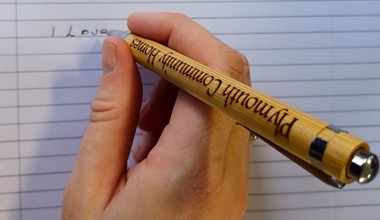 I Love
Plymouth Community Homes